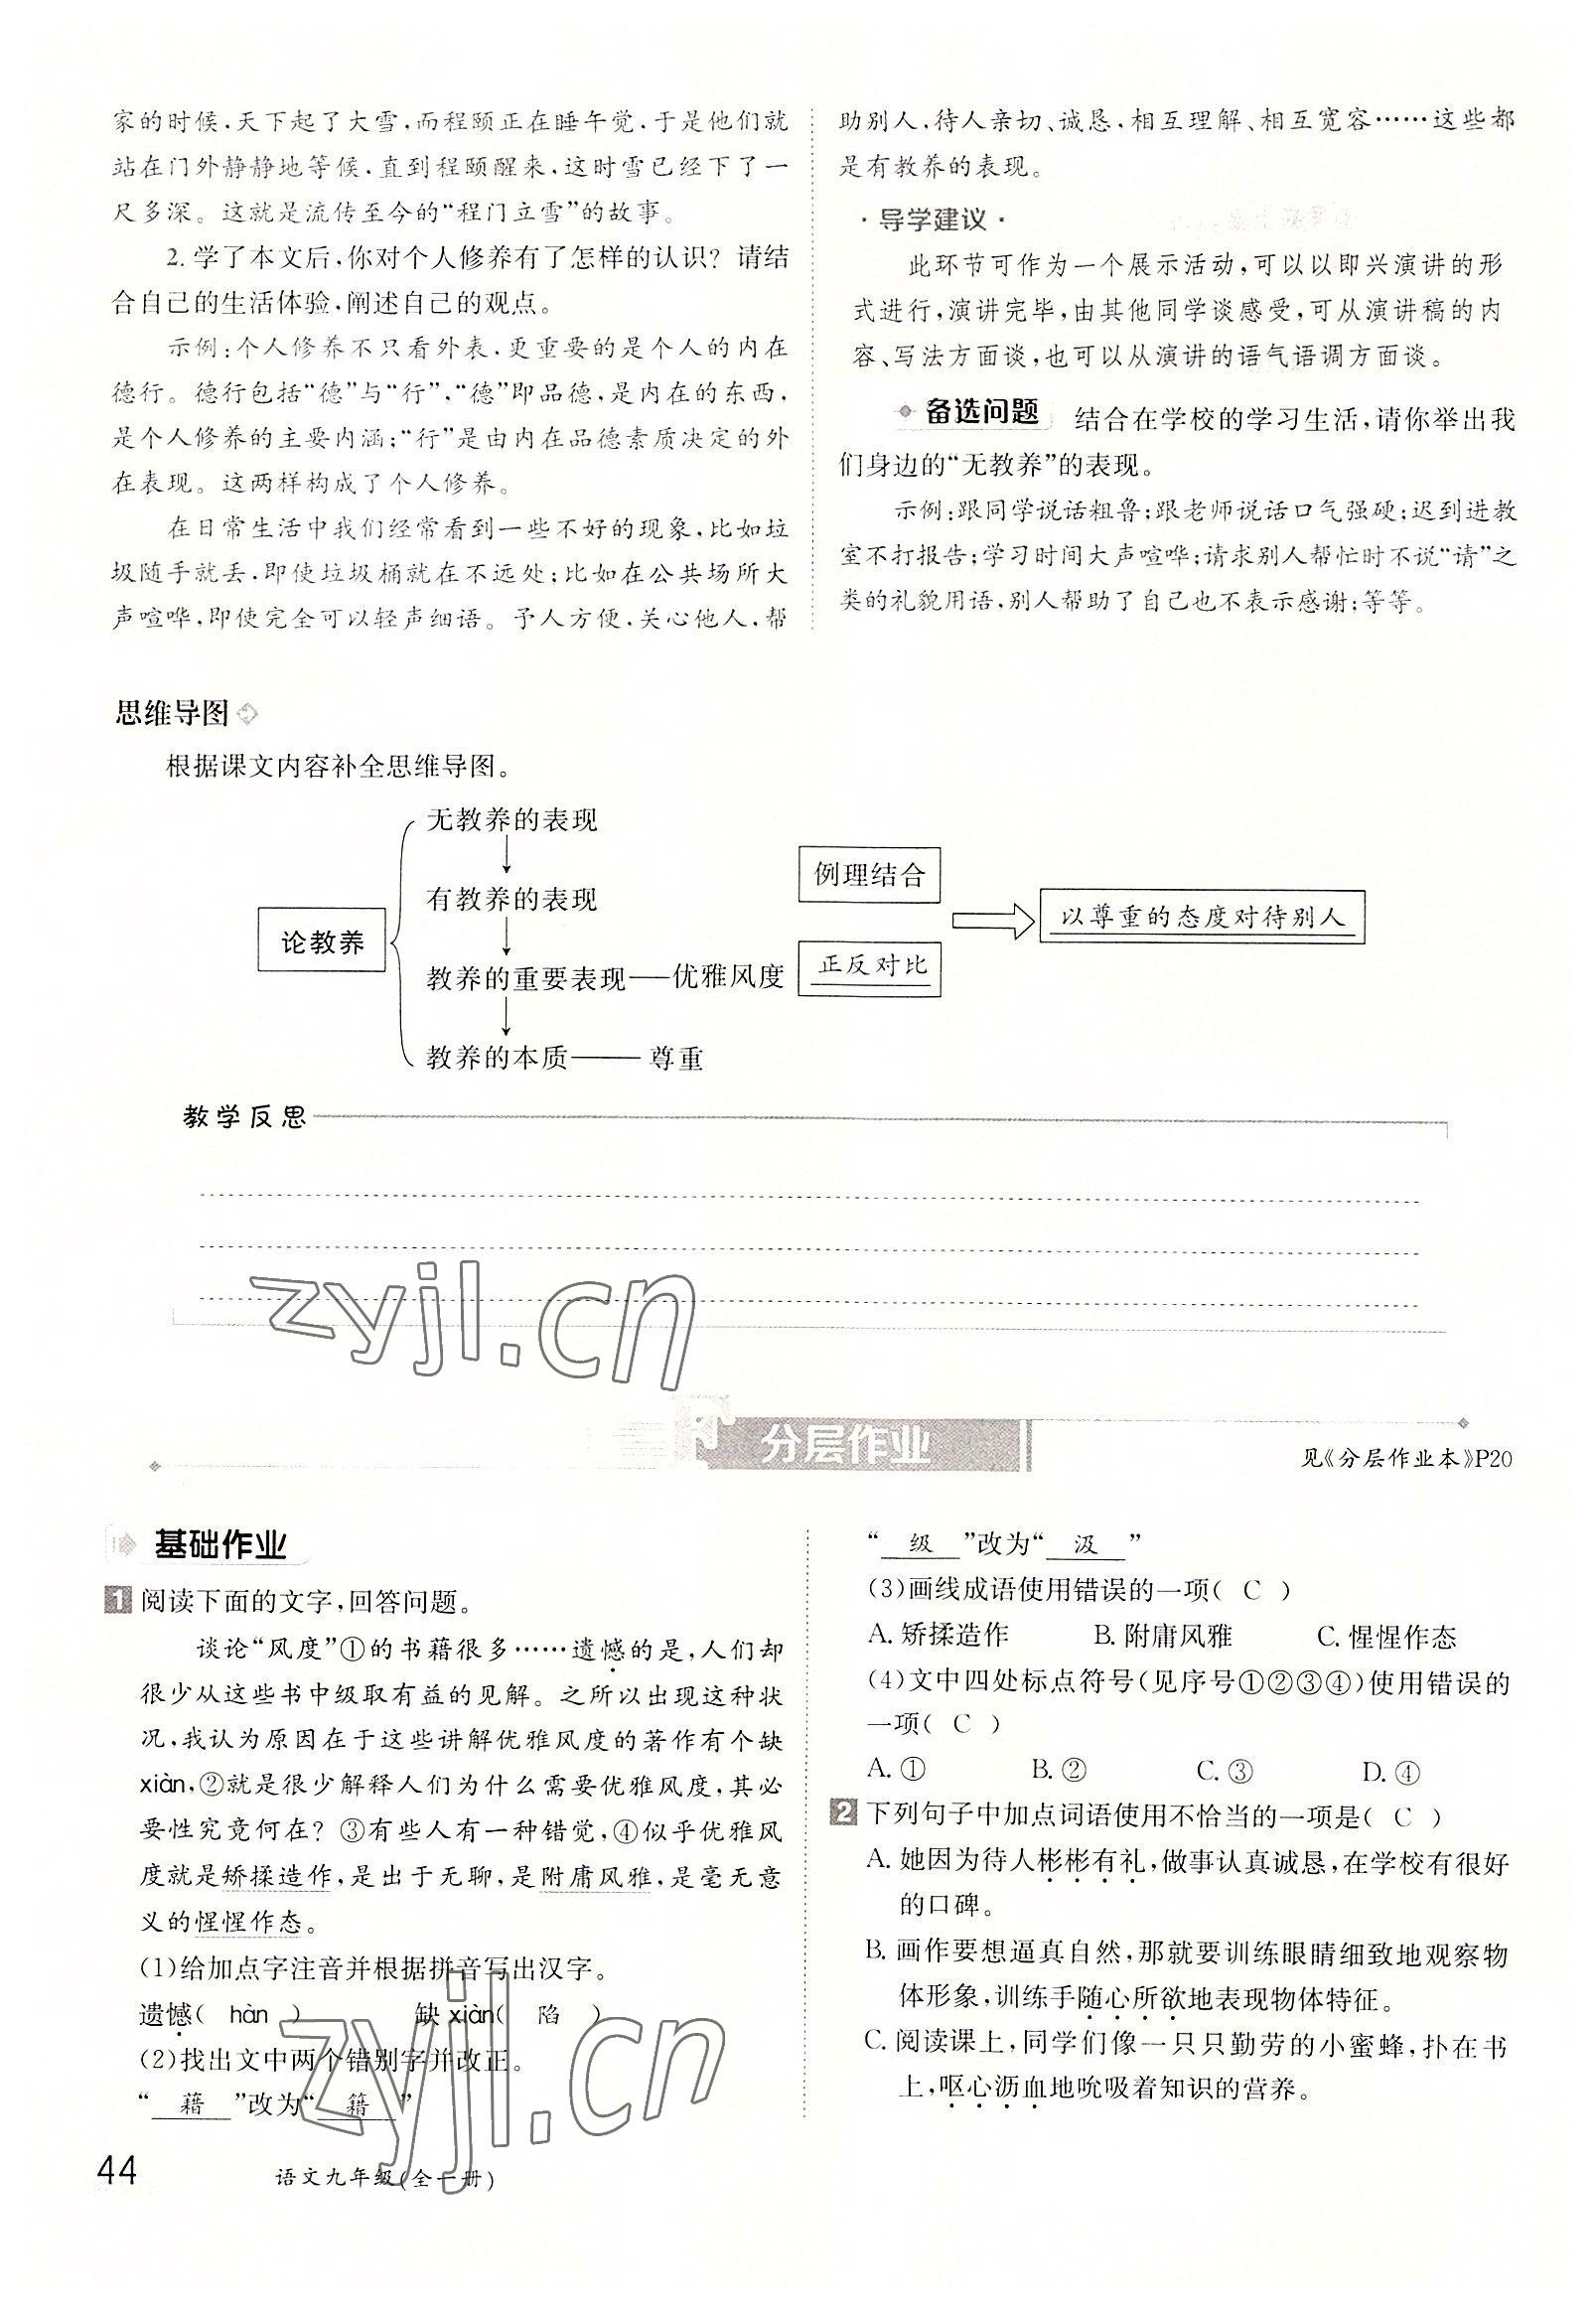 家的时候,天下起了大雪,而程颐正在睡午觉,于是他们就
站在门外静静地等候,直到程颐醒来,这时雪已经下了一
尺多深。这就是流传至今的“程门立雪”的故事。
2. 学了本文后,你对个人修养有了怎样的认识?请结
合自己的生活体验,阐述自己的观点。
示例:个人修养不只看外表,更重要的是个人的内在
德行。德行包括“德”与“行”,“德”即品德,是内在的东西,
是个人修养的主要内涵;“行”是由内在品德素质决定的外
在表现。这两样构成了个人修养。
在日常生活中我们经常看到一些不好的现象,比如垃
圾随手就丢,即使垃圾桶就在不远处;比如在公共场所大
声喧哗,即使完全可以轻声细语。予人方便,关心他人,帮
助别人,待人亲切、诚恳,相互理解、相互宽容……这些都
是有教养的表现。
·导学建议·
此环节可作为一个展示活动,可以以即兴演讲的形
式进行,演讲完毕,由其他同学谈感受,可从演讲稿的内
容、写法方面谈,也可以从演讲的语气语调方面谈。
备选问题 结合在学校的学习生活,请你举出我
们身边的“无教养”的表现。
示例:跟同学说话粗鲁;跟老师说话口气强硬;迟到进教
室不打报告;学习时间大声喧哗;请求别人帮忙时不说“请”之
类的礼貌用语,别人帮助了自己也不表示感谢;等等。
思维导图
根据课文内容补全思维导图。
论教养
无教养的表现
有教养的表现
教养的重要表现——优雅风度
教养的本质——尊重
例理结合
正反对比
以尊重的态度对待别人
教学反思
zyjl.cn
分层作业
见《分层作业本》P20
基础作业
1 阅读下面的文字,回答问题。
谈论“风度”①的书藉很多……遗憾的是,人们却
很少从这些书中级取有益的见解。之所以出现这种状
况,我认为原因在于这些讲解优雅风度的著作有个缺
xiàn,②就是很少解释人们为什么需要优雅风度,其必
要性究竟何在?③有些人有一种错觉,④似乎优雅风
度就是矫揉造作,是出于无聊,是附庸风雅,是毫无意
义的惺惺作态。
(1)给加点字注音并根据拼音写出汉字。
遗憾( hàn ) 缺 xiàn( 陷 )
(2)找出文中两个错别字并改正。
“ 藉 ”改为“ 籍 ”
“ 级 ”改为“ 汲 ”
(3)画线成语使用错误的一项( C )
A. 矫揉造作 B. 附庸风雅 C. 惺惺作态
(4)文中四处标点符号(见序号①②③④)使用错误的
一项( C )
A. ① B. ② C. ③ D. ④
2 下列句子中加点词语使用不恰当的一项是( C )
A. 她因为待人彬彬有礼,做事认真诚恳,在学校有很好
的口碑。
B. 画作要想逼真自然,那就要训练眼睛细致地观察物
体形象,训练手随心所欲地表现物体特征。
C. 阅读课上,同学们像一只只勤劳的小蜜蜂,扑在书
上,呕心沥血地吮吸着知识的营养。
zyjl.cn
44 语文九年级(全一册)